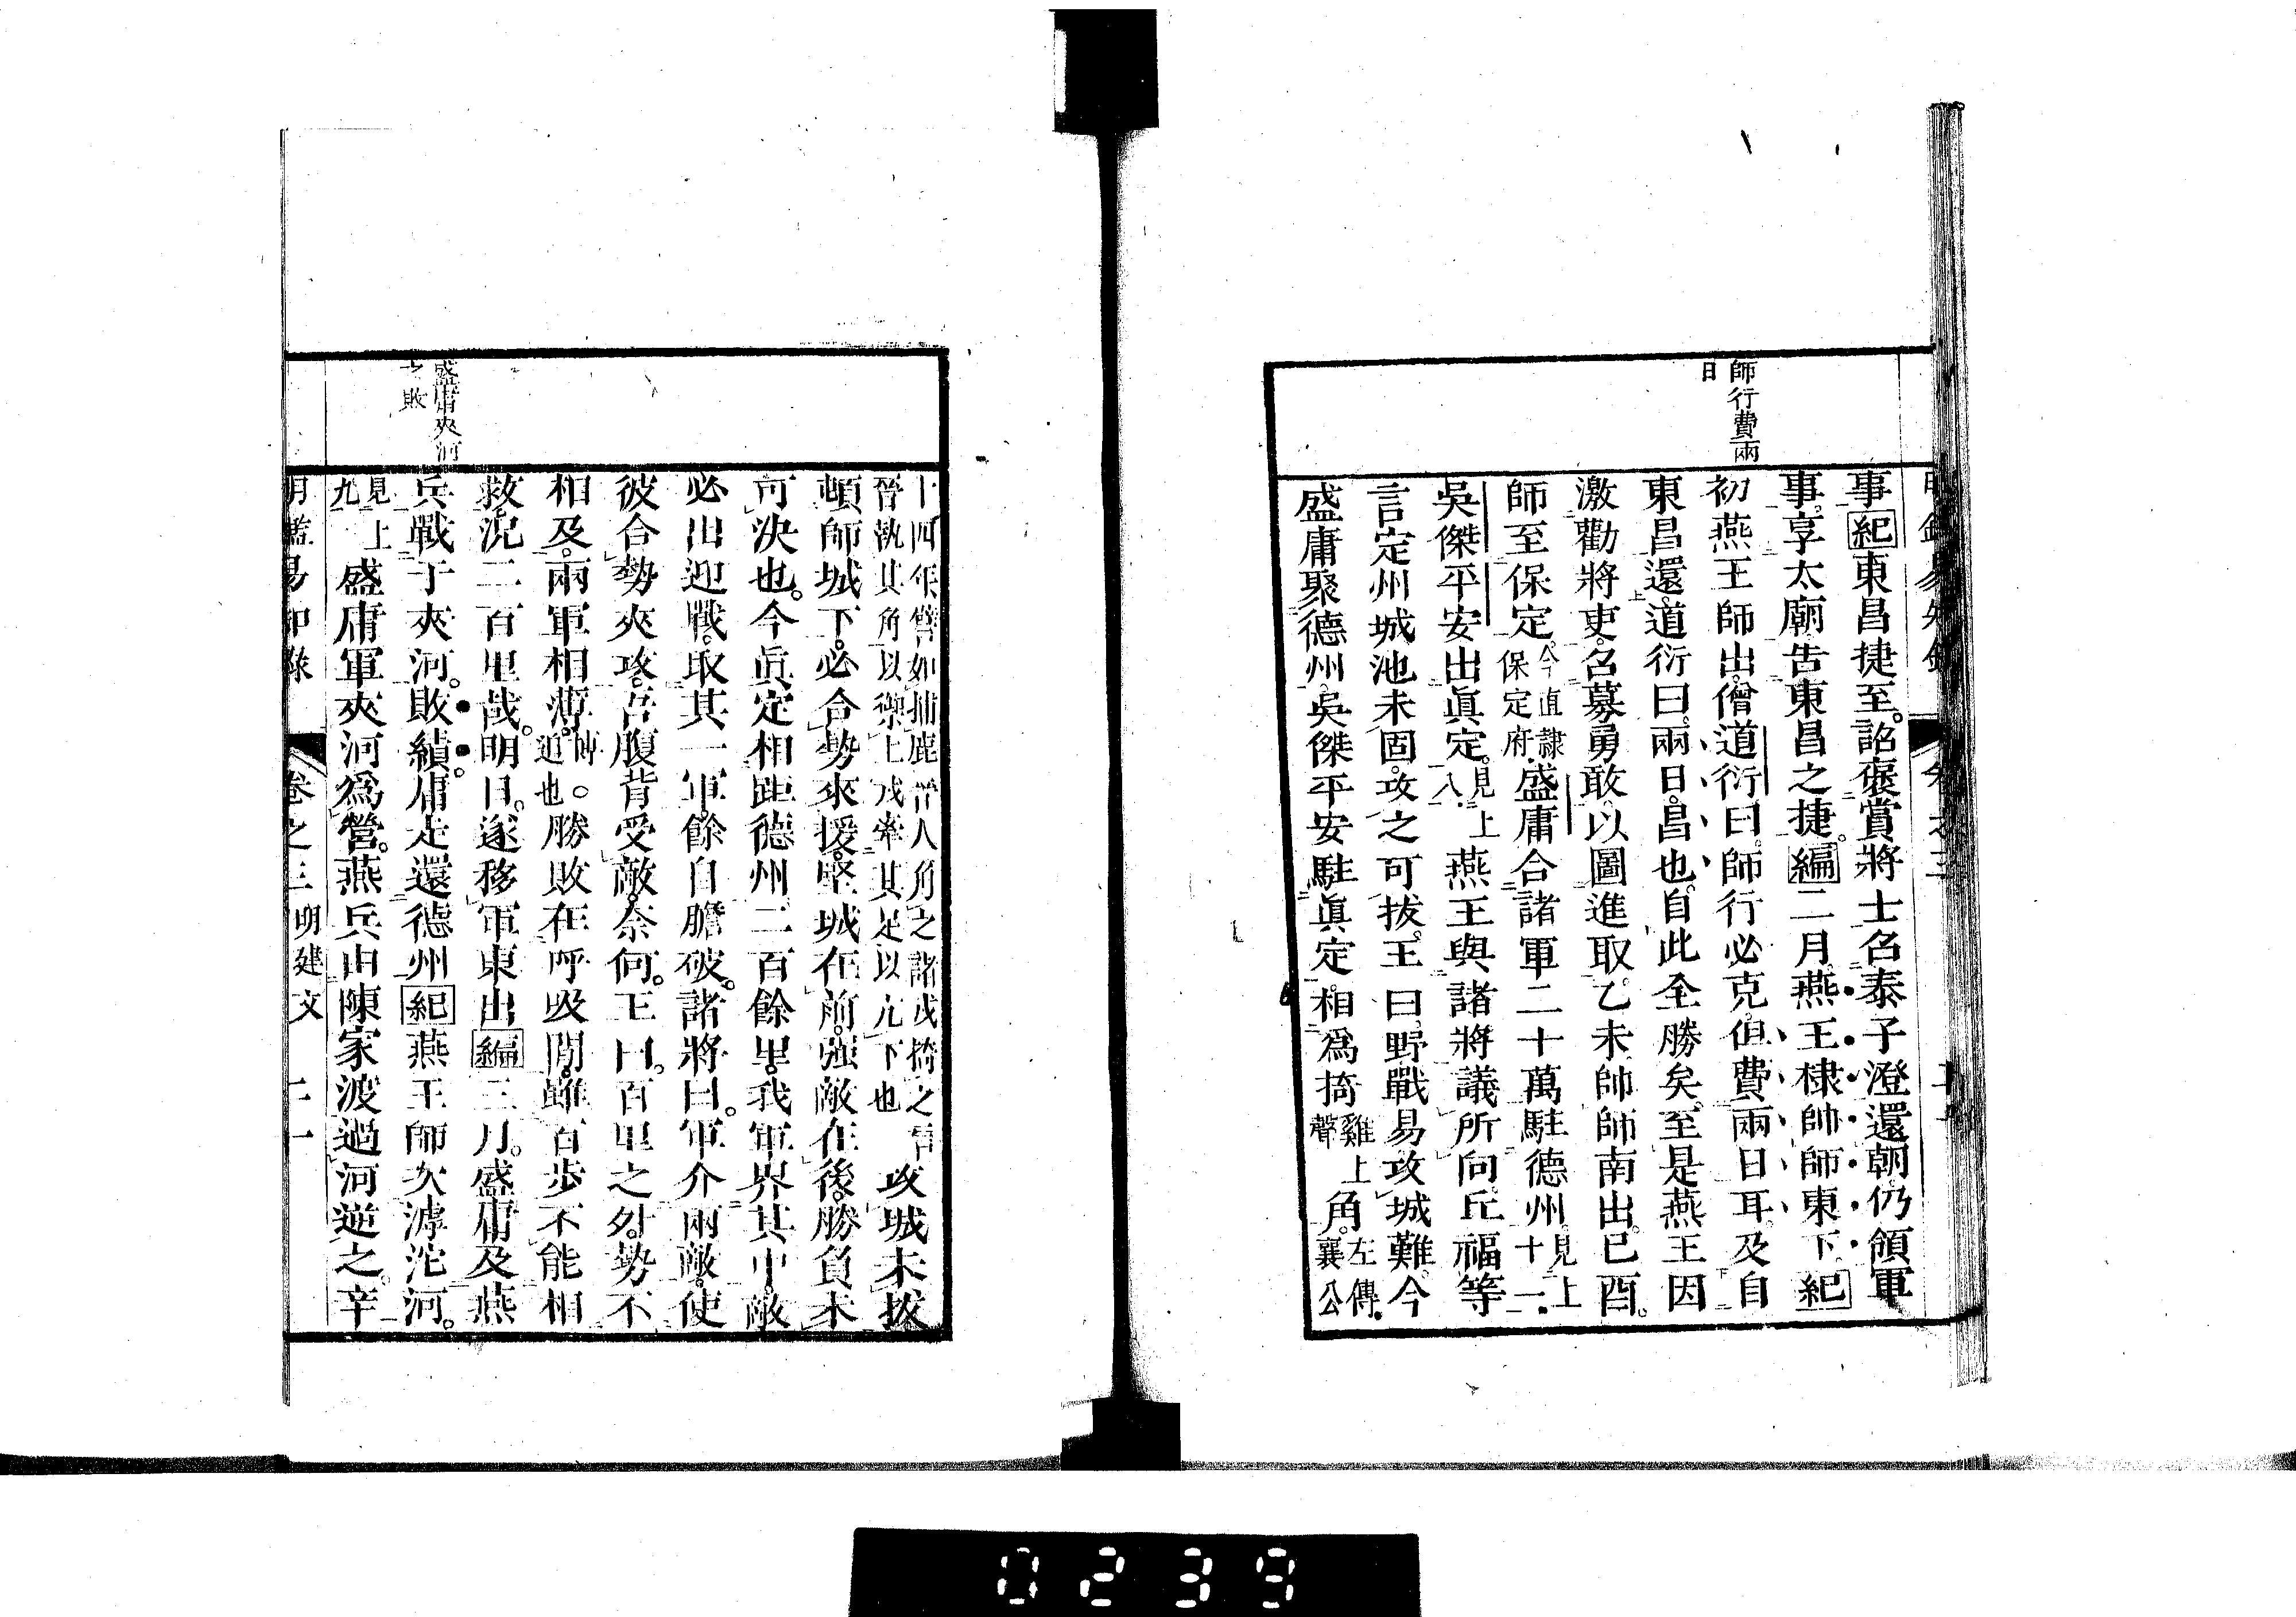 師行費兩
日
事紀東昌捷至。詔褒賞將士召泰子澄還朝仍領軍
事。享太廟告東昌之捷。編二月燕王棣帥師東下紀
初燕王師出。僧道衍曰。師行必克。但費兩日耳。及自
東昌還。道衍曰。兩日。昌也。自此全勝矣。至是燕王因
激勸將吏。召募勇敢。以圖進取。乙未帥師南出。己酉。
師至保定。今直隸保定府盛庸合諸軍二十萬駐德州。見上十二
吳傑平安出眞定。見上八燕王與諸將議所向。丘福等
言定州城池未固。攻之可拔。王曰。野戰易。攻城難。今
盛庸聚德州。吳傑平安駐眞定。相爲掎雞上聲角。左傳襄公
十四年譬如捕鹿晉人角之諸戎掎之晉
晉執其角以禦上戎牽其足以亢下也攻城未拔
頓師城下。必合勢來援。堅城在前。强敵在後。勝負未
可決也。今眞定相距德州二百餘里。我軍界其中。敵
必出迎戰。取其一軍。餘自膽破。諸將曰。軍介兩敵。使
彼合勢夾攻。吾腹背受敵。奈何。王曰。百里之外。勢不
相及。兩軍相薄。博迫也。勝敗在呼吸閒。雖百步不能相
救。況二百里哉。明日。遂移軍東出編三月。盛庸及燕
兵戰于夾河。敗績。庸走還德州紀燕王師次滹沱河。
見上九盛庸軍夾河爲營。燕兵由陳家渡過河逆之。辛
盛庸夾河
之敗
卷之三 明建文 二十一
0239